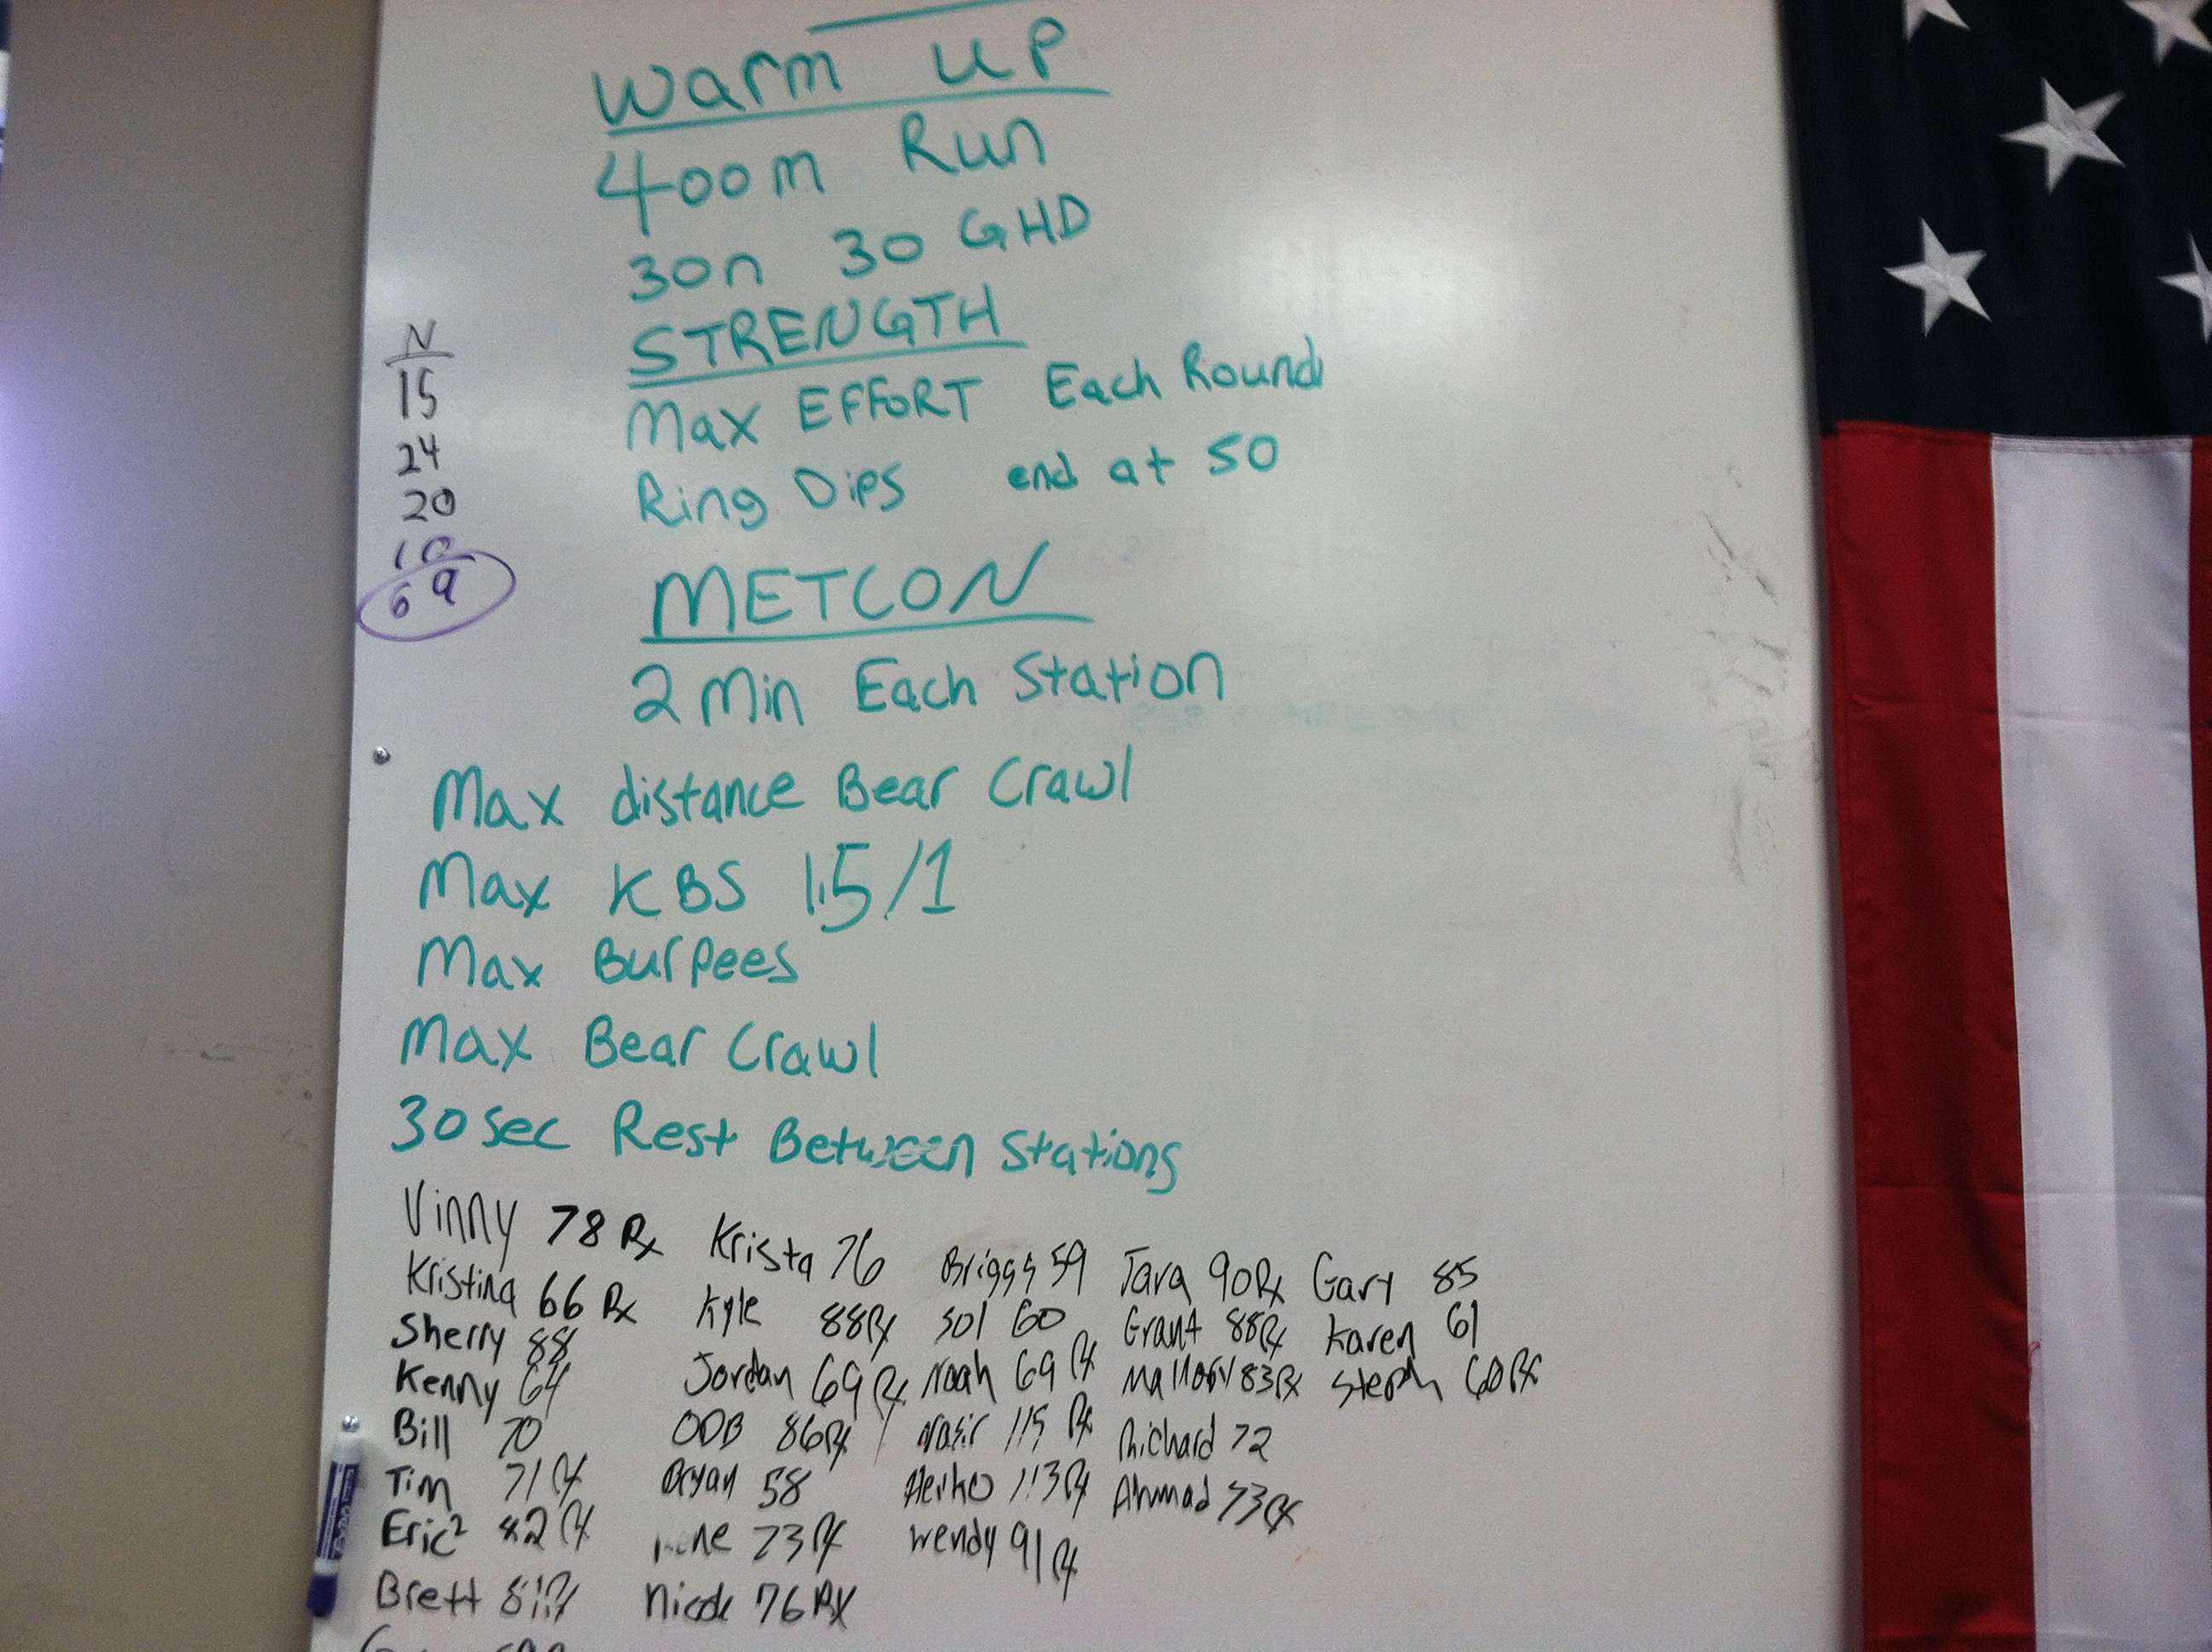 Warm UP
400m Run
30n 30 GHD
STRENGTH
Max EFFORT Each Round
Ring Dips end at 50
N
15
24
20
10
69
METCON
2 Min Each Station
Max distance Bear Crawl
Max KBS 1.5/1
Max Burpees
Max Bear Crawl
30 sec Rest Between Stations
Vinny 78 Rx
Kristina 66 Rx
Sherry 88
Kenny 64
Bill 70
Tim 71 Rx
Eric² 82 Rx
Brett
Krista 76
Kyle 88 Rx
Jordan 69 Rx
ODB 86 Rx
Bryan 58
73 Rx
Nicole 76 Rx
Briggs 59
Sol 60
Noah 69 Rx
Nasir 115 Rx
Heiko 113 Rx
Wendy 91 Rx
Jara 90 Rx
Grant 88 Rx
Mallory 83 Rx
Richard 72
Ahmad 73 Rx
Gary 85
Karen 61
Steph 60 Rx